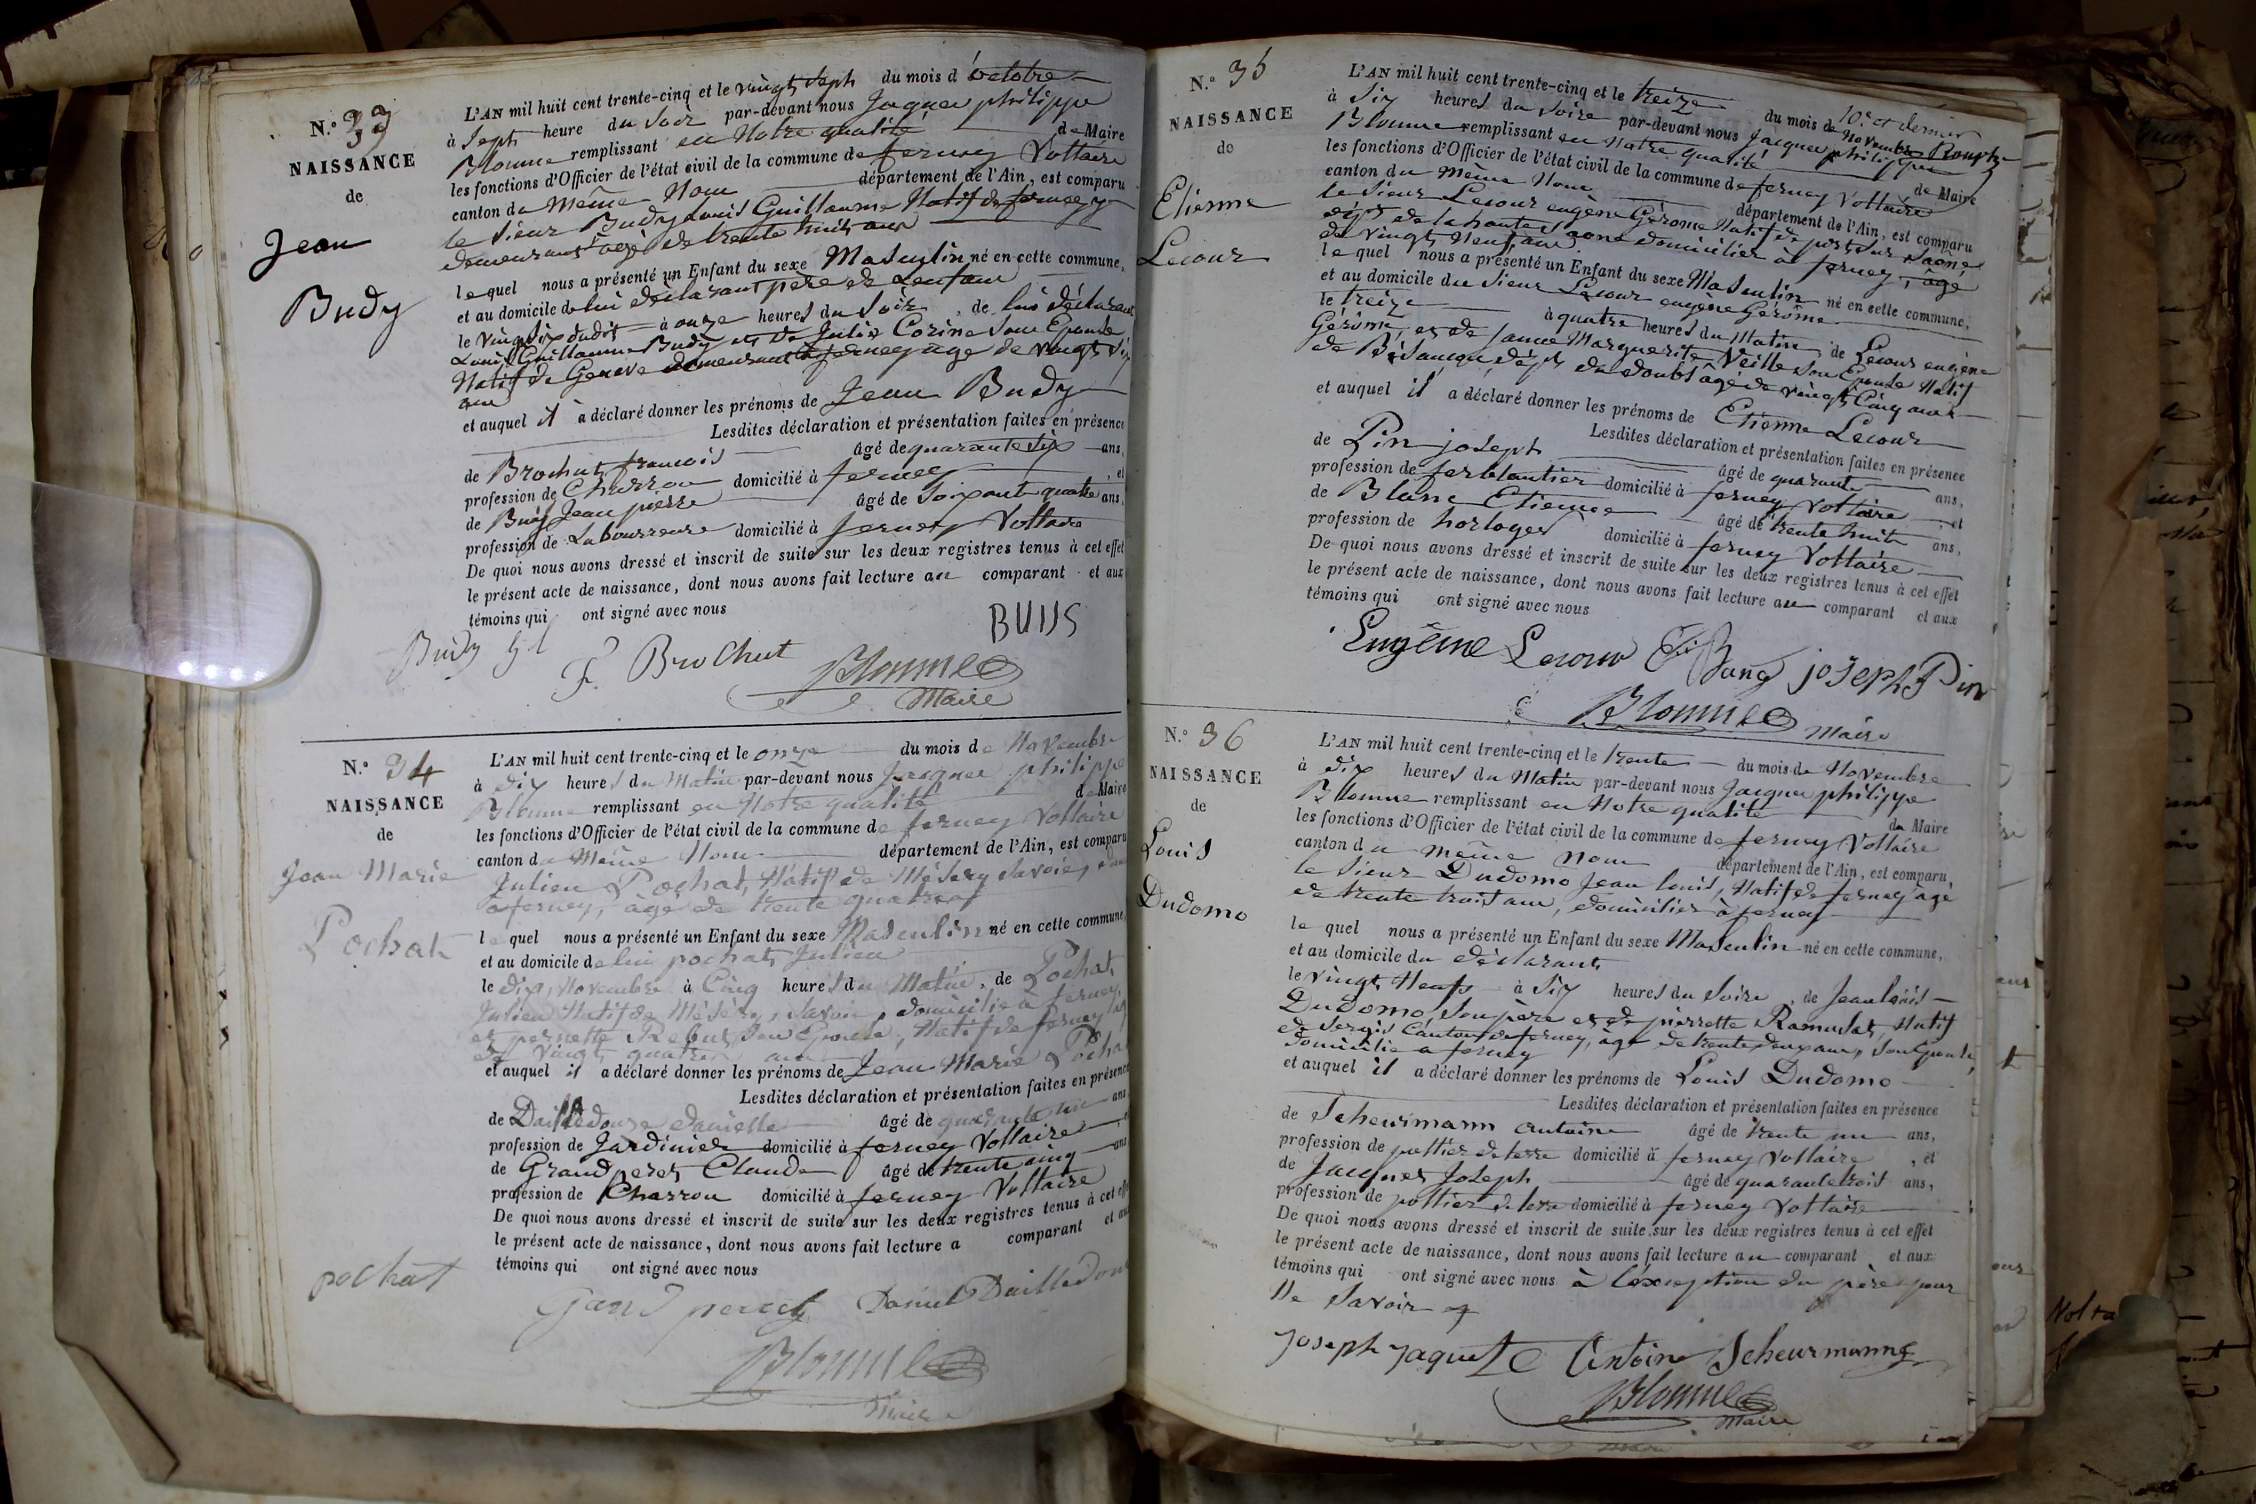 N.º 33
NAISSANCE
de
Jean
Budy
L'AN mil huit cent trente-cinq et le vingt Sept du mois d'octobre
à Sept heure du Soir par-devant nous Jaques philippe
Blonme remplissant en Notre qualité de Maire
les fonctions d'Officier de l'état civil de la commune de ferney Voltaire
canton du même Nom département de l'Ain, est comparu
le Sieur Budy Louis Guillaume Natif de ferney y
demeurant âgé de trente huit ans
lequel nous a présenté un Enfant du sexe Masculin né en cette commune,
et au domicile de lui déclarant père de Lenfant
le vingt Six dudit à onze heures du Soir, de lui déclarant
Louis Guillaume Budy et de Julie Corine Son Epouse
Natif de Geneve demeurant à ferney age de vingt Six
ans
et auquel il a déclaré donner les prénoms de Jean Budy
Lesdites déclaration et présentation faites en présence
de Brochut francois âgé de quarante Six ans,
profession de Charron domicilié à ferney, et
de Buis Jean pierre âgé de Soixante quatre ans,
profession de Labourreure domicilié à ferney Voltaire
De quoi nous avons dressé et inscrit de suite sur les deux registres tenus à cet effet
le présent acte de naissance, dont nous avons fait lecture au comparant et aux
témoins qui ont signé avec nous
BUIS
Budy
F. Brochut
Blonme
Maire
N.º 34
NAISSANCE
de
Jean Marie
Pochat
L'AN mil huit cent trente-cinq et le onze du mois de Novembre
à dix heures du Matin par-devant nous Jacques philippe
Blonme remplissant en Notre qualité de Maire
les fonctions d'Officier de l'état civil de la commune de ferney Voltaire
canton du Même Nom département de l'Ain, est comparu
Julien Pochat, Natif de Mésery Savoie,
à ferney, âgé de trente quatre
lequel nous a présenté un Enfant du sexe Masculin né en cette commune,
et au domicile de lui pochat Julien
le dix, Novembre à Cinq heures du Matin, de Pochat
Julien Natif de Mésery, Savoie, domicilié à ferney
et pernette Rebut Son Epouse, Natif de ferney
de vingt quatre ans
et auquel il a déclaré donner les prénoms de Jean Marie Pochat
Lesdites déclaration et présentation faites en présence
de Dailledouze danielle âgé de quarante un ans
profession de Jardinier domicilié à ferney Voltaire
de Grandperet Claude âgé de trente cinq ans
profession de Charron domicilié à ferney Voltaire
De quoi nous avons dressé et inscrit de suite sur les deux registres tenus à cet effet
le présent acte de naissance, dont nous avons fait lecture a comparant et aux
témoins qui ont signé avec nous
pochat
Daniel Dailledouze
Blonme
Maire
N.º 35
NAISSANCE
de
Etienne
Lecour
L'AN mil huit cent trente-cinq et le treize du mois de Novembre
à Six heures du Soire par-devant nous Jacques philippe
Blonme remplissant en Notre qualité de Maire
les fonctions d'Officier de l'état civil de la commune de ferney Voltaire
canton du même Nom département de l'Ain, est comparu
le Sieur Lecour eugène Gérome Natif de port Sur Saône,
dépt de la haute Saone domicilier à ferney, âgé
de vingt Neuf ans
lequel nous a présenté un Enfant du sexe Masculin né en cette commune,
et au domicile du Sieur Lecour eugène Gérôme
le treize à quatre heures du Matin, de Lecour eugène
Gérôme, et de Jeanne Marguerite Veille Son Epouse Natif
de Bésançon dépt du doubs âgé de vingt Cinq ans
et auquel il a déclaré donner les prénoms de Etienne Lecour
Lesdites déclaration et présentation faites en présence
de Pin joseph âgé de quarante ans,
profession de ferblantier domicilié à ferney Voltaire, et
de Blanc Etienne âgé de trente huit ans,
profession de horloger domicilié à ferney Voltaire
De quoi nous avons dressé et inscrit de suite sur les deux registres tenus à cet effet
le présent acte de naissance, dont nous avons fait lecture au comparant et aux
témoins qui ont signé avec nous
Eugène Lecour joseph Pin
Blonme
Maire
N.º 36
NAISSANCE
de
Louis
Dudomo
L'AN mil huit cent trente-cinq et le trente du mois de Novembre
à dix heures du Matin par-devant nous Jacques philippe
Blonme remplissant en Notre qualité de Maire
les fonctions d'Officier de l'état civil de la commune de ferney Voltaire
canton du même nom département de l'Ain, est comparu
le Sieur Dudomo Jean Louis, Natif de ferney âgé
de trente trois ans, domicilier à ferney
lequel nous a présenté un Enfant du sexe Masculin né en cette commune,
et au domicile du déclarant
le vingt Neuf à Six heures du Soire, de Jean Louis
Dudomo Son père et de pierrette Ramulat, Natif
de Sergis Canton de ferney, âgé de trente deux ans, Son Epouse,
domicilié à ferney
et auquel il a déclaré donner les prénoms de Louis Dudomo
Lesdites déclaration et présentation faites en présence
de Scheurmann antoine âgé de trente un ans,
profession de pottier de terre domicilié à ferney Voltaire, et
de Jacquet Joseph âgé de quarante trois ans,
profession de pottier de terre domicilié à ferney Voltaire
De quoi nous avons dressé et inscrit de suite sur les deux registres tenus à cet effet
le présent acte de naissance, dont nous avons fait lecture au comparant et aux
témoins qui ont signé avec nous à l'exception du père pour
Ne Savoir
joseph jaquet Antoine Scheurmann
Blonme
Maire